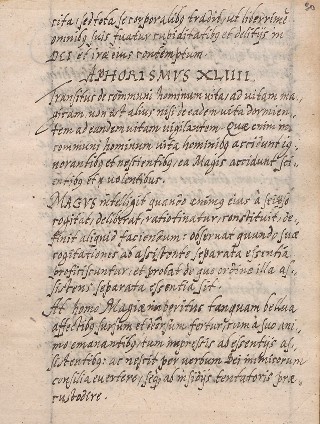 cita, sed tota se corporalibꝰ tradit, ut liberrime
omnibꝯ suis fruatur cupiditatibꝯ et delitijs in
DEI et iræ eius contemptum.
APHORISMVS XLIIII
Transitus de communi hominum vita, ad vitam ma
gicam non est alius nisi de eadem vita dormien-
tem ad eandem vitam vigilantem. Quæ enim in
communi hominum vita hominibꝯ accidunt ig-
norantibꝯ et nescientibꝯ, ea Magis accidunt sci-
entibꝯ et volentibus.
MAGVS intelligit quando animꝯ eius à se ipso
cogitat, deliberat, ratiotinatur, constituit, de-
finit aliquid faciendum: observat quando suæ
cogitationes ab assistente separata essentia
profitiscuntur, et probat de quo ordine illa as-
sistens separata essentia sit.
At homo Magiæ imperitus tanquam bellua
affectibꝯ sursum et deorsum fertur tum a suo ani-
mo emanantibꝯ, tum impressis ab essentijs as-
sistentibꝯ: ac nescit per verbum Dei inimicorum
consilia evertere, seqꝫ ab insidijs tentatoris præ
custodire.